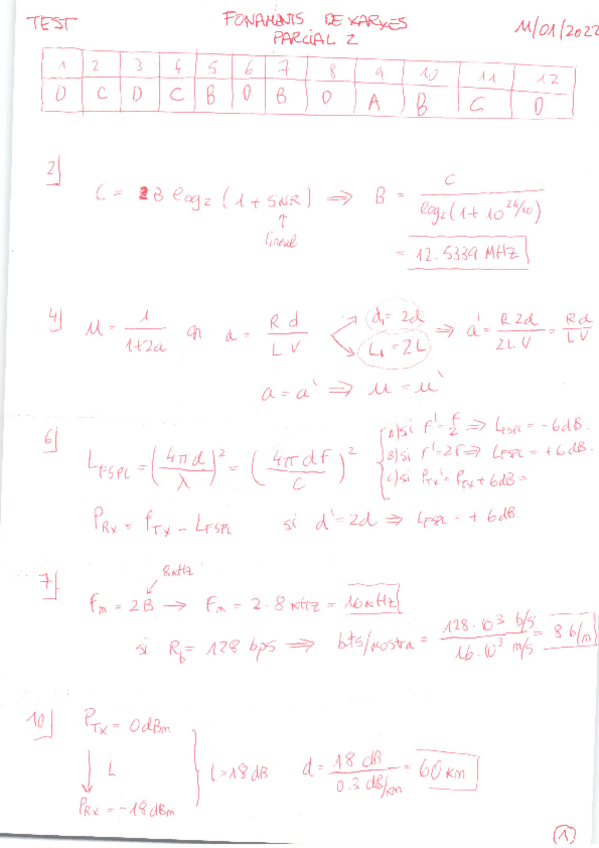 TEST
FONAMENTS DE XARXES
PARCIAL 2
11/01/2022
1 2 3 4 5 6 7 8 9 10 11 12
D C D C B D B D A B C D
2)
C = B log₂ (1 + SNR) ⟹ B = C / log₂(1 + 10^(26/10))
↑
lineal
= 12.5339 MHz
4) u = 1 / (1+2a) on a = R d / L V
d₁ = 2d
L₁ = 2L
⟹ a' = R 2d / 2L V = R d / L V
a = a' ⟹ u = u'
6)
L_FSPL = (4πd / λ)² = (4π d F / C)²
A) si F' = F/2 ⟹ L_FSPL = -6dB.
B) si F' = 2F ⟹ L_FSPL = +6dB.
C) si P_TX' = P_TX + 6dB =
P_RX = P_TX - L_FSPL si d' = 2d ⟹ L_FSPL = + 6dB
7)
8kHz
Fm = 2B → Fm = 2 · 8 kHz = 16 kHz
si R_b = 128 bps ⟹ bits/mostra = 128·10³ b/s / 16·10³ m/s = 8 b/m
10) P_TX = 0 dBm
↓ L
P_RX = -18 dBm
L = 18 dB d = 18 dB / 0.3 dB/km = 60 km
1